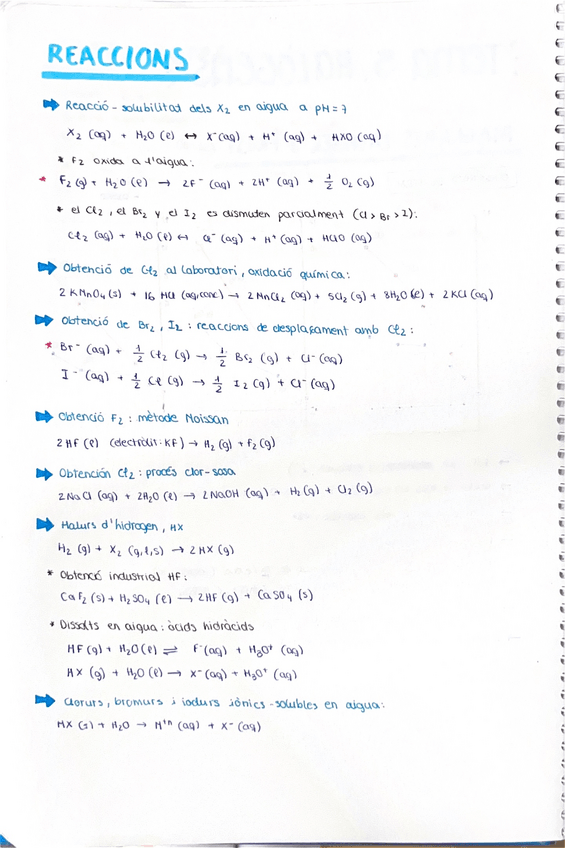 REACCIONS
Reacció - solubilitat dels X₂ en aigua a pH = 7
X₂ (aq) + H₂O (ℓ) ↔ X⁻(aq) + H⁺ (aq) + HXO (aq)
* F₂ oxida a l'aigua:
* F₂(g) + H₂O (ℓ) → 2F⁻ (aq) + 2H⁺ (aq) + 1/2 O₂ (g)
* el Cl₂, el Br₂ y el I₂ es dismuten parcialment (Cl > Br > I):
Cl₂ (aq) + H₂O (ℓ) ↔ Cl⁻ (aq) + H⁺ (aq) + HClO (aq)
Obtenció de Cl₂ al laboratori, oxidació química:
2 KMnO₄ (s) + 16 HCl (aq, conc) → 2 MnCl₂ (aq) + 5Cl₂ (g) + 8H₂O (ℓ) + 2 KCl (aq)
Obtenció de Br₂, I₂ : reaccions de desplaçament amb Cl₂ :
* Br⁻ (aq) + 1/2 Cl₂ (g) → 1/2 Br₂ (g) + Cl⁻ (aq)
I⁻ (aq) + 1/2 Cl (g) → 1/2 I₂ (g) + Cl⁻ (aq)
Obtenció F₂ : mètode Moissan
2 HF (ℓ) (electròlit: KF) → H₂ (g) + F₂ (g)
Obtención Cl₂ : procés clor-sosa
2 NaCl (aq) + 2H₂O (ℓ) → 2 NaOH (aq) + H₂ (g) + Cl₂ (g)
Halurs d'hidrogen, HX
H₂ (g) + X₂ (g, ℓ, s) → 2 HX (g)
* Obtenció industrial HF:
CaF₂ (s) + H₂SO₄ (ℓ) → 2HF (g) + CaSO₄ (s)
* Dissolts en aigua : àcids hidràcids
HF (g) + H₂O (ℓ) ⇌ F⁻(aq) + H₃O⁺ (aq)
HX (g) + H₂O (ℓ) → X⁻(aq) + H₃O⁺ (aq)
Clorurs, bromurs i iodurs iònics - solubles en aigua:
MX (s) + H₂O → M⁺ⁿ (aq) + X⁻ (aq)